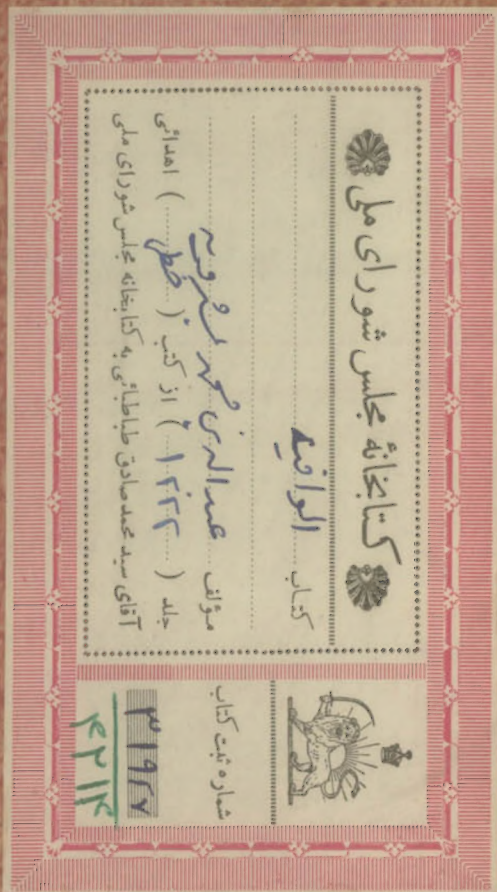 کتابخانهٔ مجلس شورای ملی
کتاب الوافیه
مؤلف عبدالله بن محمد
جلد ( ۱۲۲۲ ) از کتب ( خطی ) اهدائی
آقای سید محمد صادق طباطبائی به کتابخانه مجلس شورای ملی
شماره ثبت کتاب
۳۱۹۲۷
۴۲۱۴